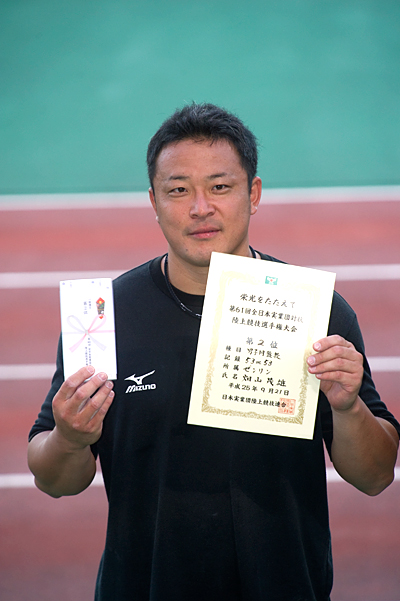 栄光をたたえて
第61回全日本実業団対抗
陸上競技選手権大会
第2位
種目
記録 53m53
所属 ゼンリン
氏名 畑山茂雄
平成25年9月21日
日本実業団陸上競技連合
MIZUNO